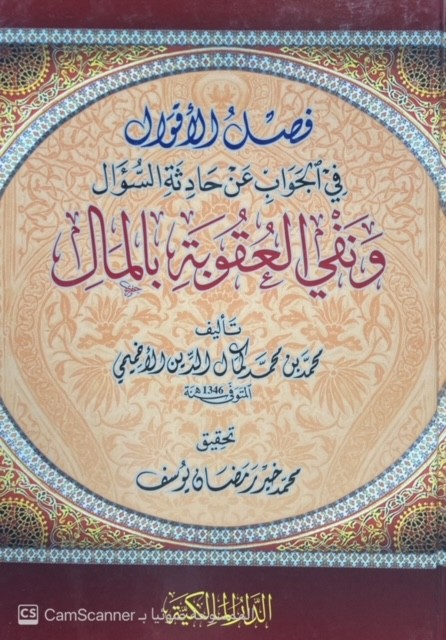 فصل الأقوال
في الجواب عن حادثة السؤال
ونفي العقوبة بالمال
تأليف
محمد بن محمد كمال الدين الإخميمي
المتوفى سنة 1346 هـ
تحقيق
محمد خير رمضان يوسف
الدار المالكية
CS CamScanner بـ ضوئيا